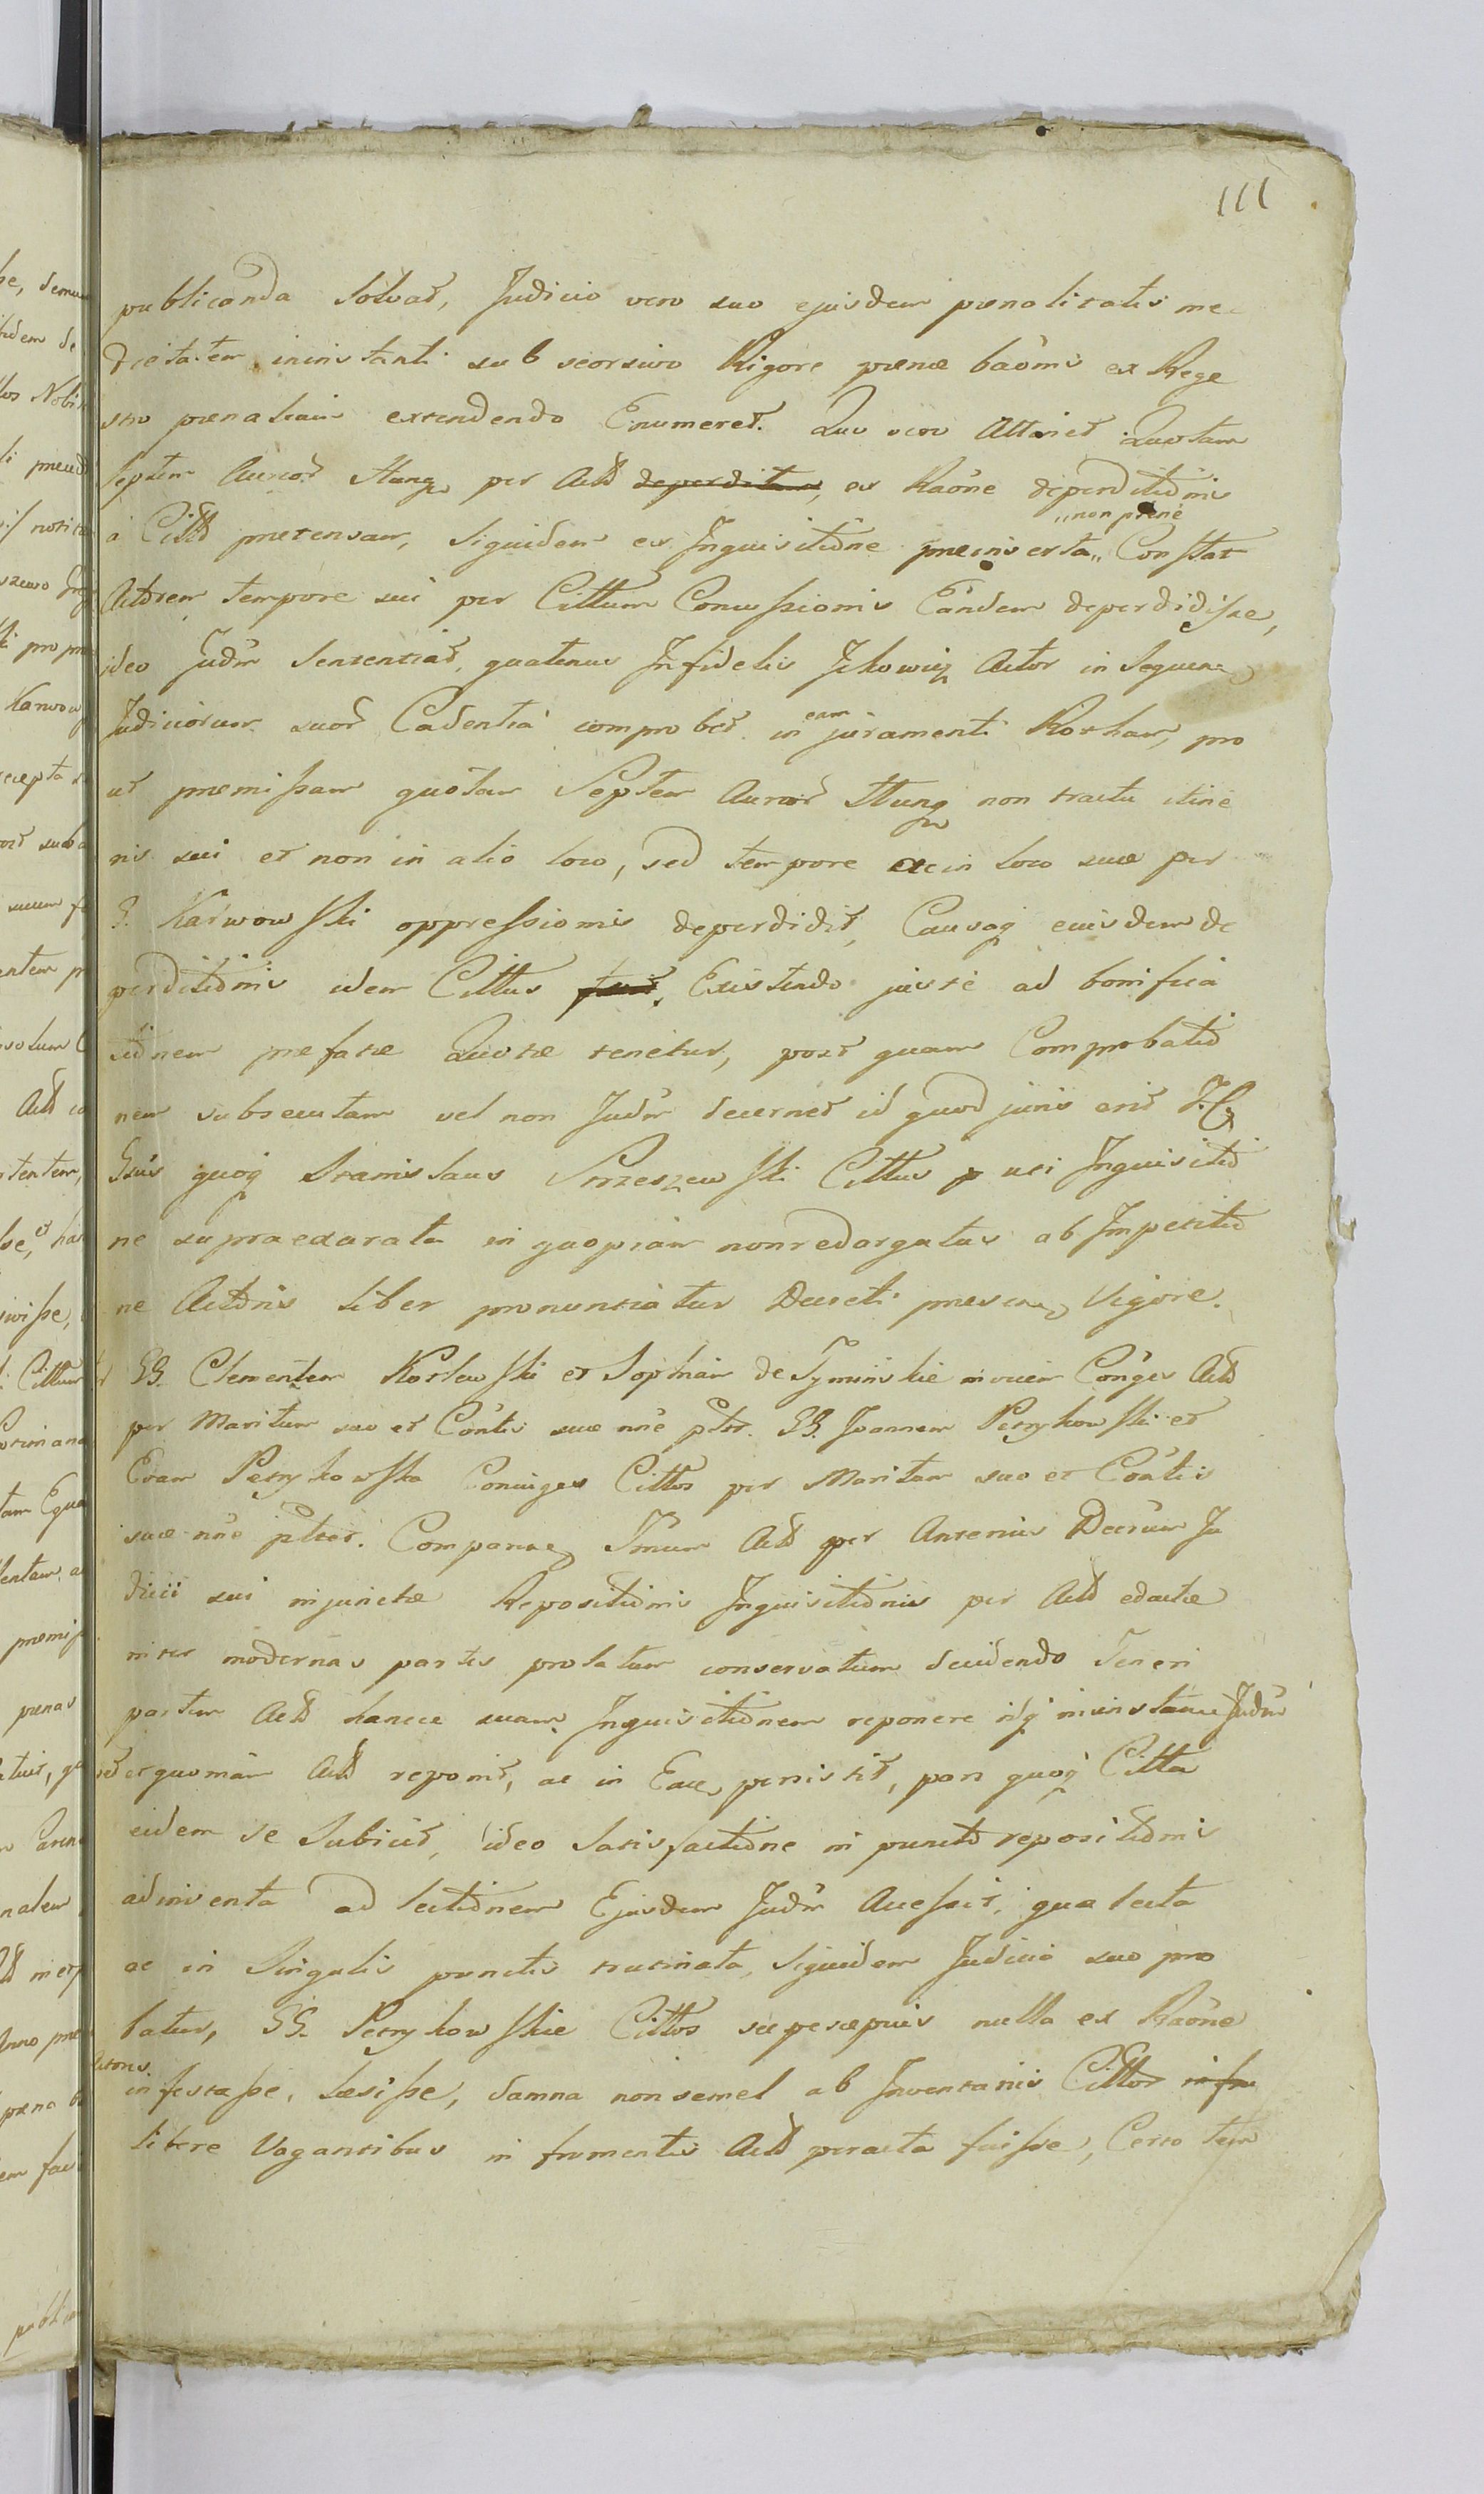 111
publicanda Solvat, Judicio vero suo ejusdem poenalitatis me
dietatem ininstanti sub seorsivo Rigore poenae baōnis ex Rege
stro poenalium extendendo Enumeret. Quo vero Attinet Quotam
Septem Aureor Hung per Actt deperditam, ex Raōne deperditiōnis
à Citto praetensam, Siquidem ex Inquisitiōne praeinserta „non plene„ Constat
Actōrem tempore sui per Cittum Concussionis Eandem deperdidisse,
ideo Judm Sententiat, quatenus Infidelis Ickowicz Actor in Sequen
Judiciorum suor Cadentia comprobet in eam juramenti Rotham, pro
ut praemissam quotam Septem Aureor Hung non tractu itine
ris sui et non in alio loco, sed tempore ac in loco suae per
G. Karwowski oppressionis deperdidit, Causaq ejusdem de
perditiōnis idem Cittus fuit, Existendo juste ad bonifica
tiōnem praefatae Quotae tenetur, post quam Comprobatiō
nem subsecutam vel non Judm decernet id quod juris erit
Gsus quoq Stanislaus Strzeszewski Cittus p uti Inquisitiō
ne supraexarata in quopiam nonredargutus ab Impetitiō
ne Actōris liber pronuntiatur Decreti praesen Vigore.
GG. Clementem Korlewski et Sophiam de Tyminskie invicem Conges Actt
per Maritum suo et Contis suae nne ptor. GG. Joannem Petrykowski et
Evam Petrykowska Conjuges Cittos per Maritum suo et Contis
suae nne ptor. Comparen Imum Actt per Anterius Decrum Ju
dicii sui injunctae Repositiōnis Inquisitiōnis per Actt eductae
inter modernas partes prolatum conservatum decidendo Teneri
partem Actt hancce suam Inquisitiōnem reponere idq ininstanti Judm
et quoniam Actt reponit, ac in Eace persistit, pars quoq Citta
eidem se Subicit, ideo Satisfactiōne in puncto repositiōnis
adinventa ad lectiōnem Ejusdem Judm Accessit, qua lecta
ac in Singulis punctis trutinata, Siquidem Judicio suo pro
batur, GG. Petrykowskie Cittos saepesaepius nulla ex Raōne
Actores infestasse, laesisse, damna non semel ab Inventariis Cittor in fru
libere Vagantibus in frumentis Actt peracta fuisse, Certo tem